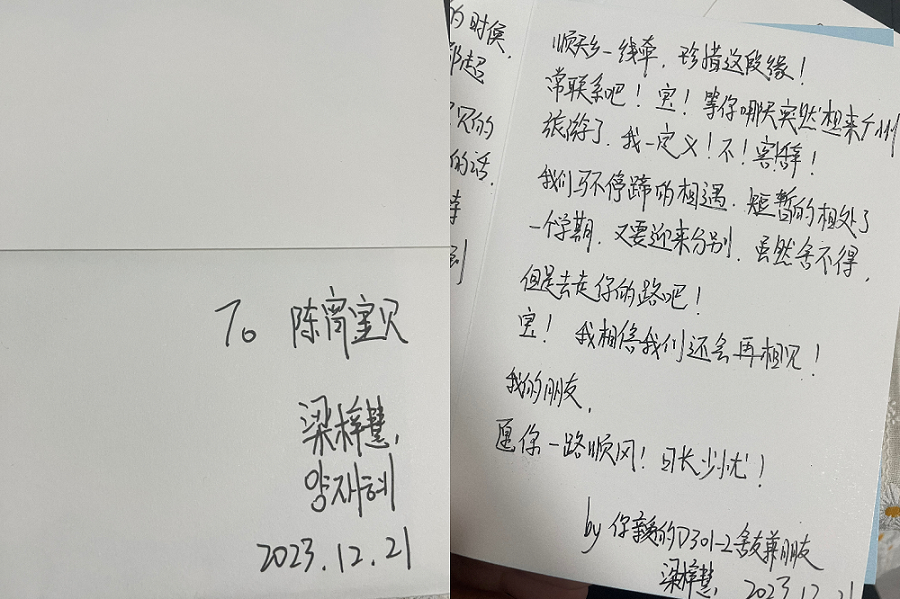 To 陈宵宝贝
梁梓慧,
양자혜
2023.12.21
的时候,
贝的
的话.
到
顺天乡一线牵,珍惜这段缘!
常联系吧!宝!等你哪天突然想来广州
旅游了.我一定义!不!容辞!
我们马不停蹄的相遇.短暂的相处了
一个学期.又要迎来分别.虽然舍不得,
但是去走你的路吧!
宝!我相信我们还会再相见!
我的朋友,
愿你一路顺风!日长少忧!
by 你亲爱的D301-2舍友兼朋友
梁梓慧, 2023.12.21